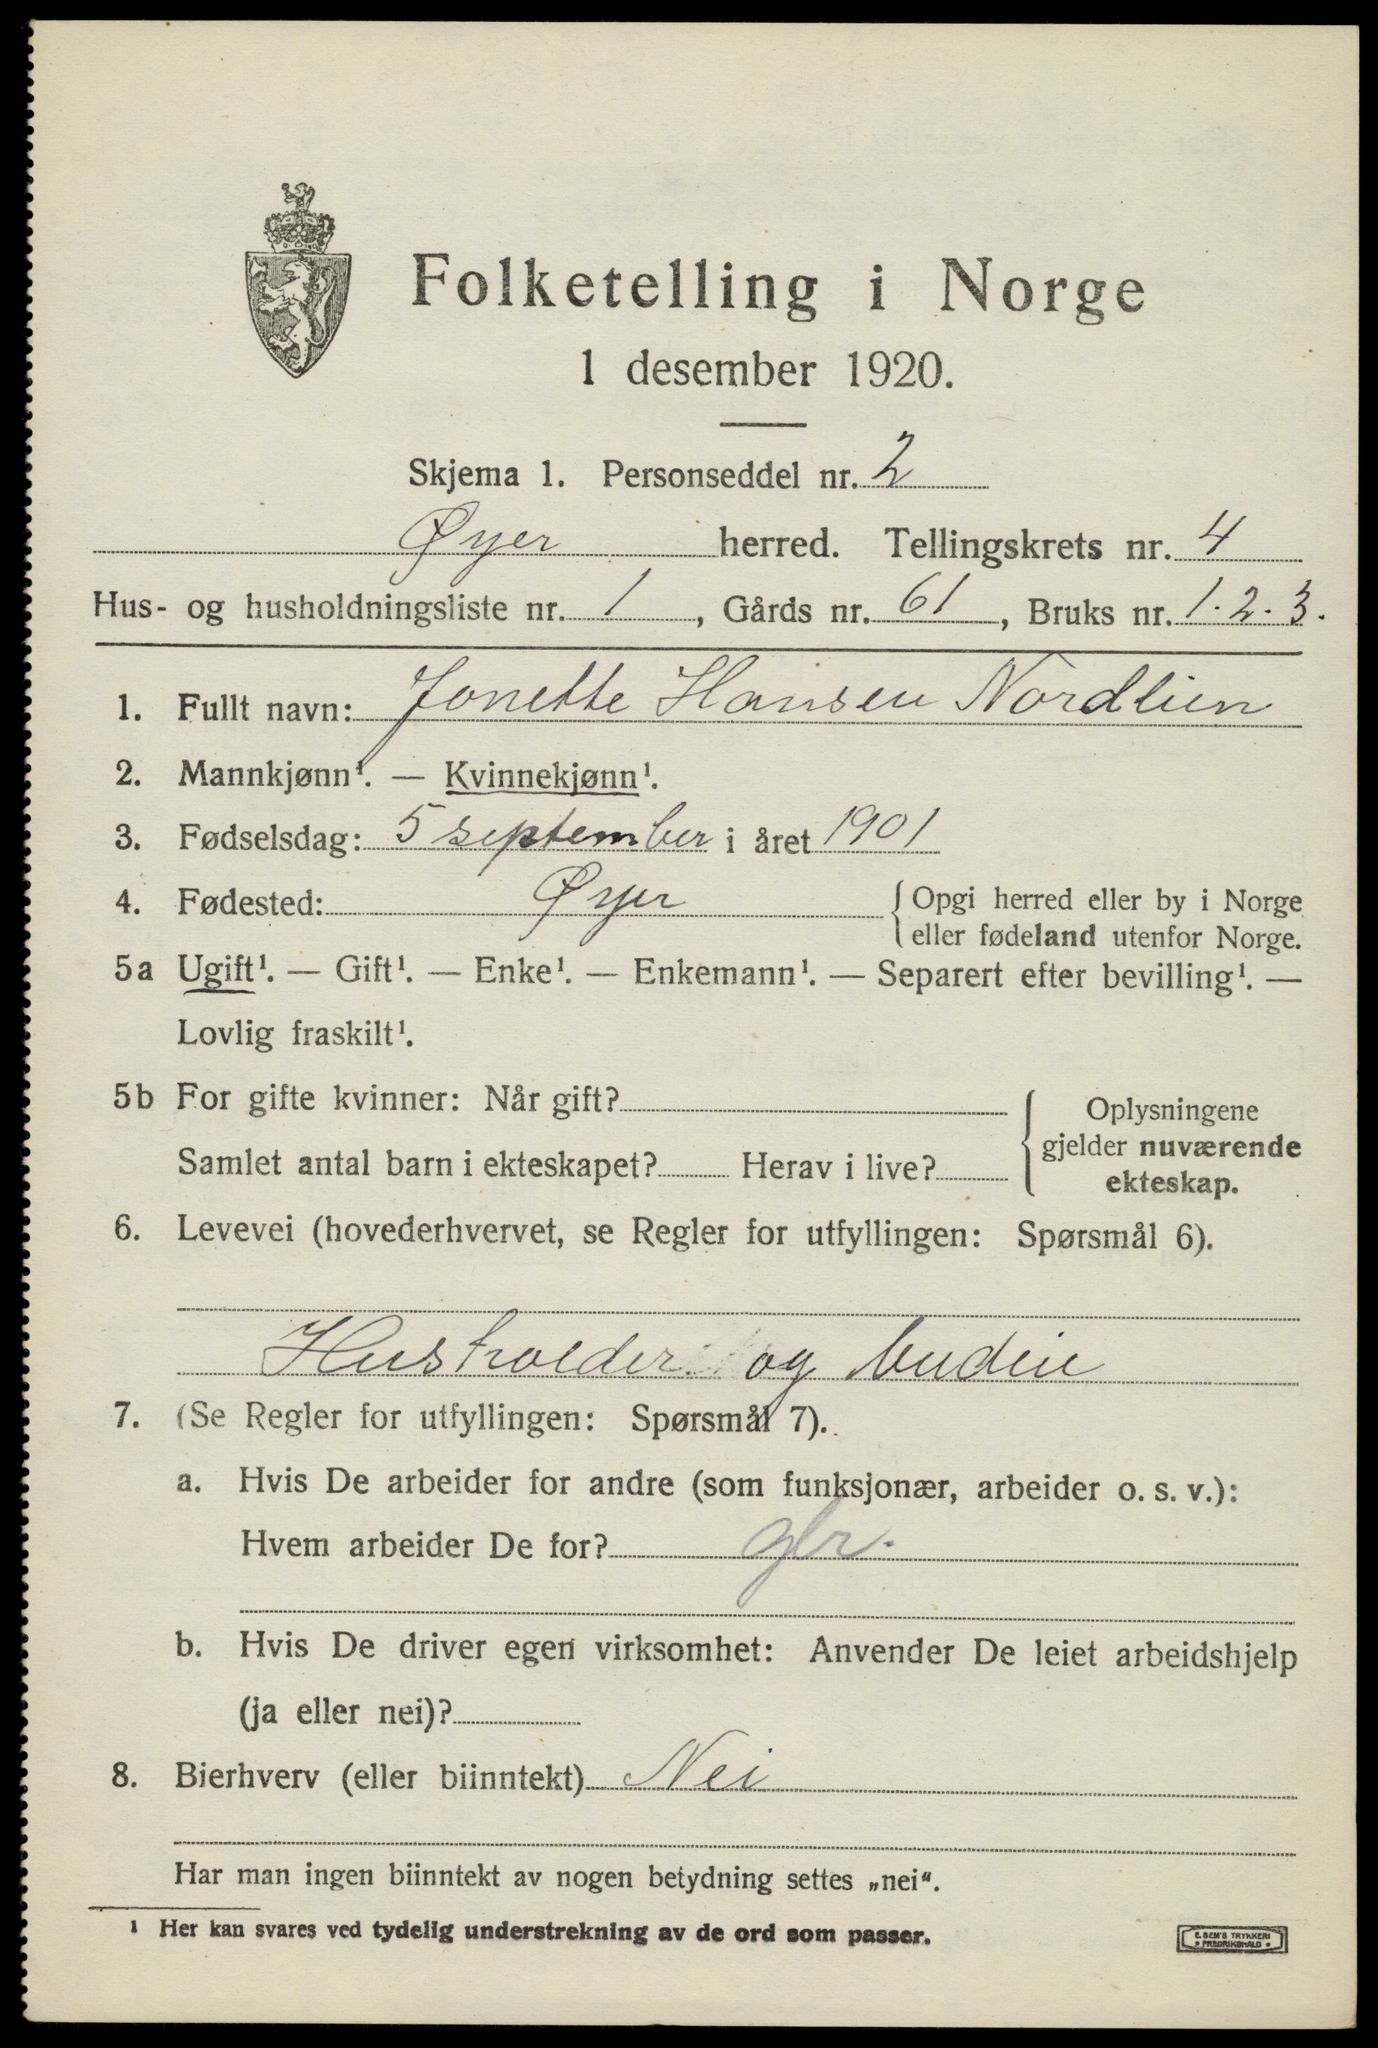 Folketelling i Norge
1 desember 1920.
Skjema 1. Personseddel nr. 2
Øyer herred. Tellingskrets nr. 4
Hus- og husholdningsliste nr. 1, Gårds nr. 61, Bruks nr. 1.2.3.
1. Fullt navn: Jonette Hansen Nordlien
2. Mannkjønn¹. — Kvinnekjønn¹.
3. Fødselsdag: 5 september i året 1901
4. Fødested: Øyer { Opgi herred eller by i Norge
eller fødeland utenfor Norge.
5a Ugift¹. — Gift¹. — Enke¹. — Enkemann¹. — Separert efter bevilling¹. —
Lovlig fraskilt¹.
5b For gifte kvinner: Når gift? { Oplysningene
gjelder nuværende
Samlet antal barn i ekteskapet? Herav i live?
ekteskap.
6. Levevei (hovederhvervet, se Regler for utfyllingen: Spørsmål 6).
Husholder og budeie
7. (Se Regler for utfyllingen: Spørsmål 7).
a. Hvis De arbeider for andre (som funksjonær, arbeider o. s. v.):
Hvem arbeider De for? gbr.
b. Hvis De driver egen virksomhet: Anvender De leiet arbeidshjelp
(ja eller nei)?
8. Bierhverv (eller biinntekt) Nei
Har man ingen biinntekt av nogen betydning settes „nei“.
¹ Her kan svares ved tydelig understrekning av de ord som passer.
E. SEM'S TRYKKERI
• FREDRIKSHALD •